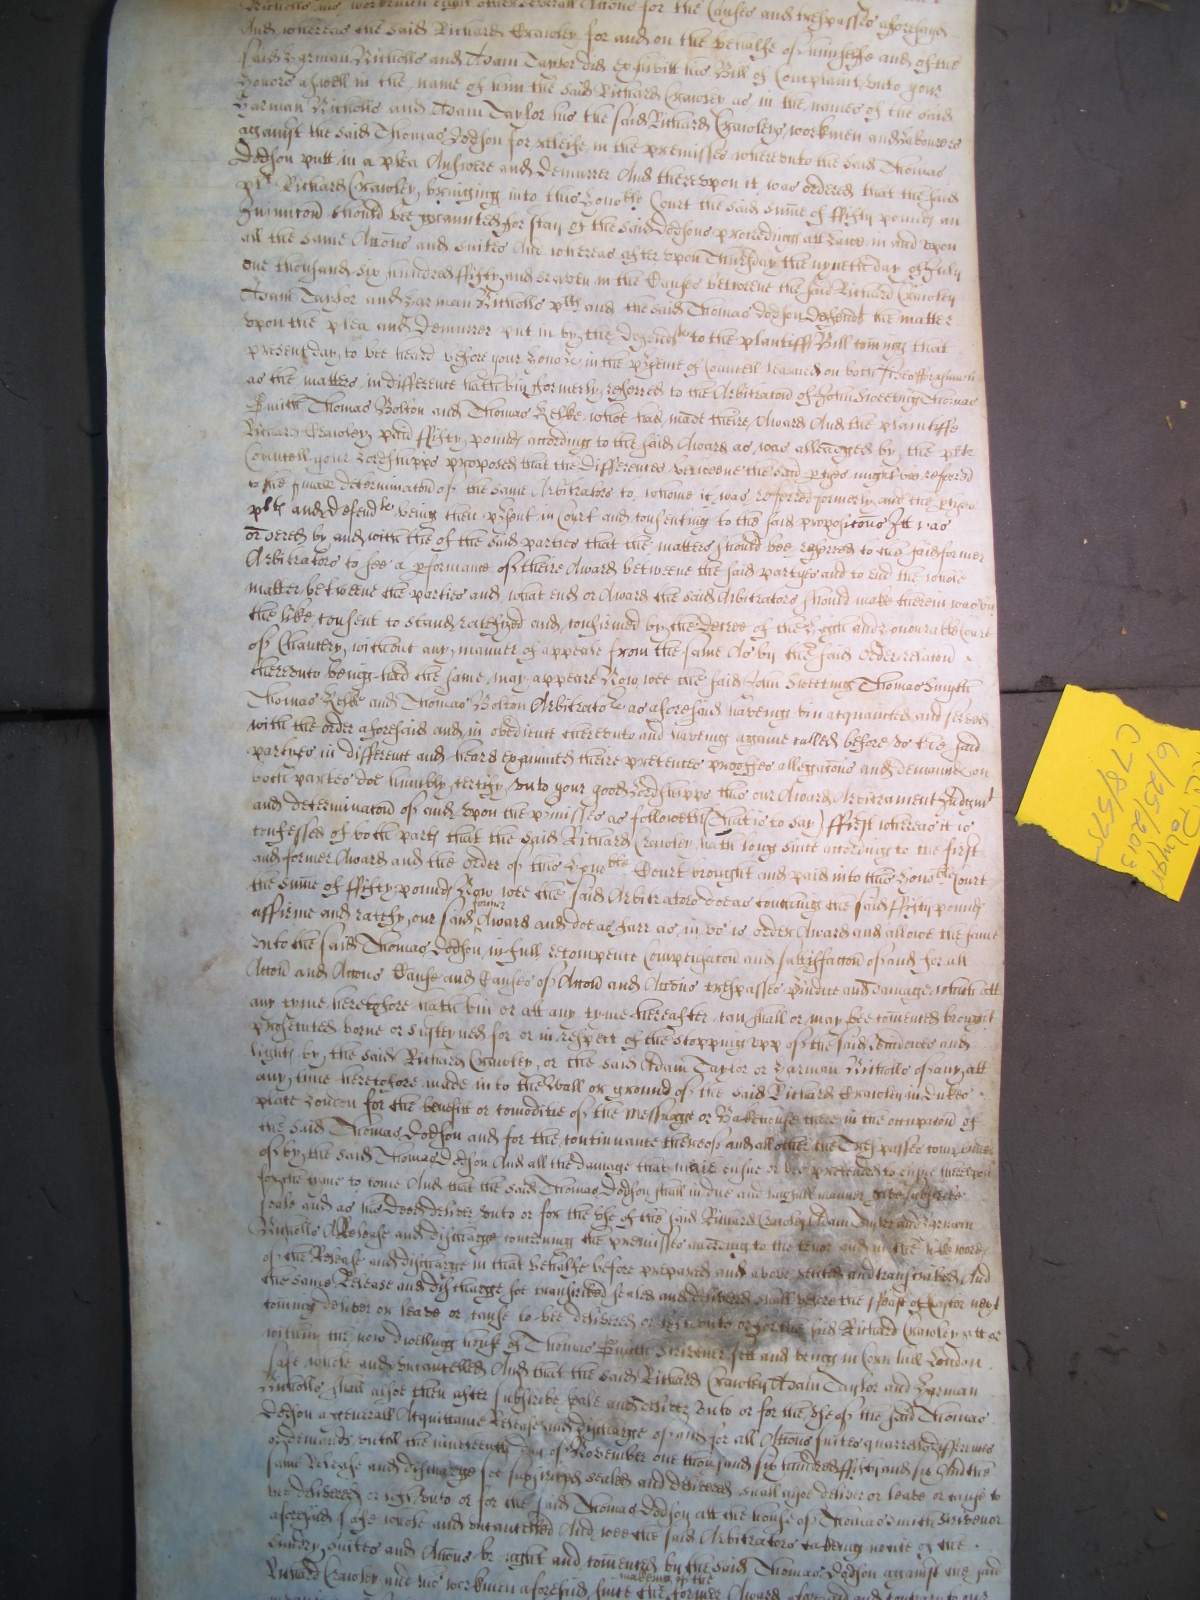 Nicholls his workmen eight other severall Accons for the Causes and trespasses aforesayd
And whereas the said Richard Crawley for and on the behalfe of himselfe and of the
said Harman Nicholls and Adam Taylor did exhibitt his Bill of Complaint unto your
Honors aswell in the name of him the said Richard Crawley as in the names of the said
Harman Nicholls and Adam Taylor his the said Richard Crawleys workmen and Labourers
against the said Thomas Dodson for releife in the premisses whereunto the said Thomas
Dodson putt in a plea Answere and Demurrer And thereupon it was ordered that the said
plt Richard Crawley bringing into this Honoble Court the said Sume of ffifty pounds an
Injunccon should bee graunted for stay of the said Dodsons proceedings att Lawe in and upon
all the same Accons and suites And whereas after upon Thursday the nyneth day of July
one thousand six hundred ffifty and seaven in the Causes betweene the said Richard Crawley
Adam Taylor and Harman Nicholls plts and the said Thomas Dodson Defendt the matter
upon the plea and Demurrer put in by the Defendt to the plantiffs Bill coming that
present day to bee heard before your Honors in the psence of Councell learned on both
as the matters in difference hath bin formerly referred to the Arbitracon of John Sweeting Thomas
Smith Thomas Bolton and Thomas Relfe whoe had made theire Award And the plaintiffe
Richard Crawley paid ffifty pounds according to the said Award as was alleadged by the plts
Councell your Lordshipps proposed that the differences betweene the said ptyes might be referred
to the finall determinacon of the same Arbitrators to whome it was referred formerly and the
plts and Defendts being then psent in Court and consenting to the said proposicons Itt was
ordered by and with the of the said parties that the matters should bee referred to the said former
Arbitrators to see a pformance of theire Award betweene the said partyes and to end the whole
matter betweene the parties and what end or Award the said Arbitrators should make therein was by
the like consent to stand ratefyed and confirmed by the Decree of the High and Honourable Court
of Chancery without any manner of appeale from the same As by the said order relacon
thereunto being had the same may appeare Now wee the said John Sweeting Thomas Smyth
Thomas Relfe and Thomas Bolton Arbitrators as aforesaid haveing bin acquainted and served
with the order aforesaid and in obedience thereunto and having againe called before us the said
partyes in difference and heard examined theire pretences prooffes allegacons and demaunds on
both partes doe humbly certify unto your good Lordshipps this our Award Arbitrament Judgmt
and determinacon of and upon the pmisses as followeth (That is to say) ffirst whereas it is
confessed of both parts that the said Richard Crawley hath long since according to the first
and former Award and the order of this Honoble Court brought and paid into this Honoble Court
the Sume of ffifty pounds Now wee the said Arbitrators doe as touching the said ffifty pounds
affirme and ratefy our said former Award and doe as farr as in us is order Award and allowe the same
unto the said Thomas Dodson in full recompence Compensacon and sattisfaccon of and for all
Accon and Accons Cause and Causes of Accon and Accons trespasses and damage which att
any tyme heretofore hath bin or att any tyme hereafter can shall or may bee comenced brought
prosecuted borne or susteyned for or in respect of the stopping upp of the said Windowes and
lights by the said Richard Crawley or the said Adam Taylor or Harman Nicholls of any att
any time heretofore made in to the Wall or ground of the said Richard Crawley in Dukes
place London for the benefitt or comoditie of the Messuage or Bakehouse there in the occupacon of
the said Thomas Dodson and for the continuance thereof and all other the Trespasses complained
of by the said Thomas Dodson And all the damage that ensue or bee pretended to ensue thereupon
for the tyme to come And that the said Thomas Dodson shall in due and lawfull manner subscribe
seale and as his Deed deliver unto or for the use of the said Richard Crawley Adam Taylor and Harman
Nicholls A Release and discharge concerning the premisses according to the tenor and in the like
of the Release and discharge in that behalfe before prepared and above recited and transcribed And
the same Release and discharge soe transcribed sealed and delivered shall before the ffeast of Easter next
coming deliver or leave or cause to bee delivered or left unto or for the said Richard Crawley att or
within the now dwelling house of Thomas Smith Scrivener sett and being in Corn hill London
safe whole and uncancelled And that the said Richard Crawley Adam Taylor and Harman
Nicholls shall alsoe then after subscribe seale and deliver unto or for the use of the said Thomas
Dodson a generall Acquittance Release and discharge of and for all Accons suites quarrells differences
untill the nineteenth day of November one thousand six hundred ffifty and six And the
same release and discharge soe subscribed sealed and delivered shall alsoe deliver or leave or cause to
bee delivered or left unto or for the said Thomas Dodson att the house of Thomas Smith Scrivenor
aforesaid safe whole and uncancelled And wee the said Arbitrators takeing notice of the
sundry suites and Accons brought and comenced by the said Thomas Dodson against the said
Richard Crawley and his workmen aforesaid since the makeing of the former Award
6/25/2013
C78/575